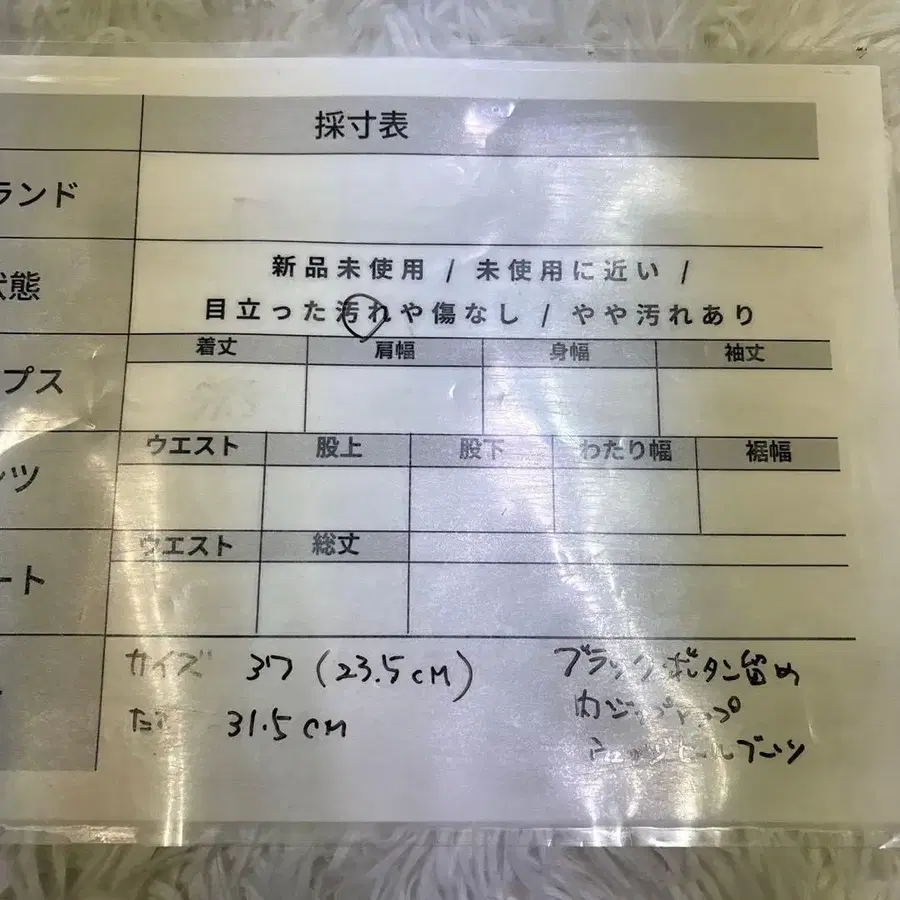 採寸表
ランド
状態
新品未使用 / 未使用に近い /
目立った汚れや傷なし / やや汚れあり
プス
着丈 肩幅 身幅 袖丈
ンツ
ウエスト 股上 股下 わたり幅 裾幅
ート
ウエスト 総丈
サイズ 37 (23.5cm)
31.5cm
ブラックボタン留め
内ジップアップ
ブーツ